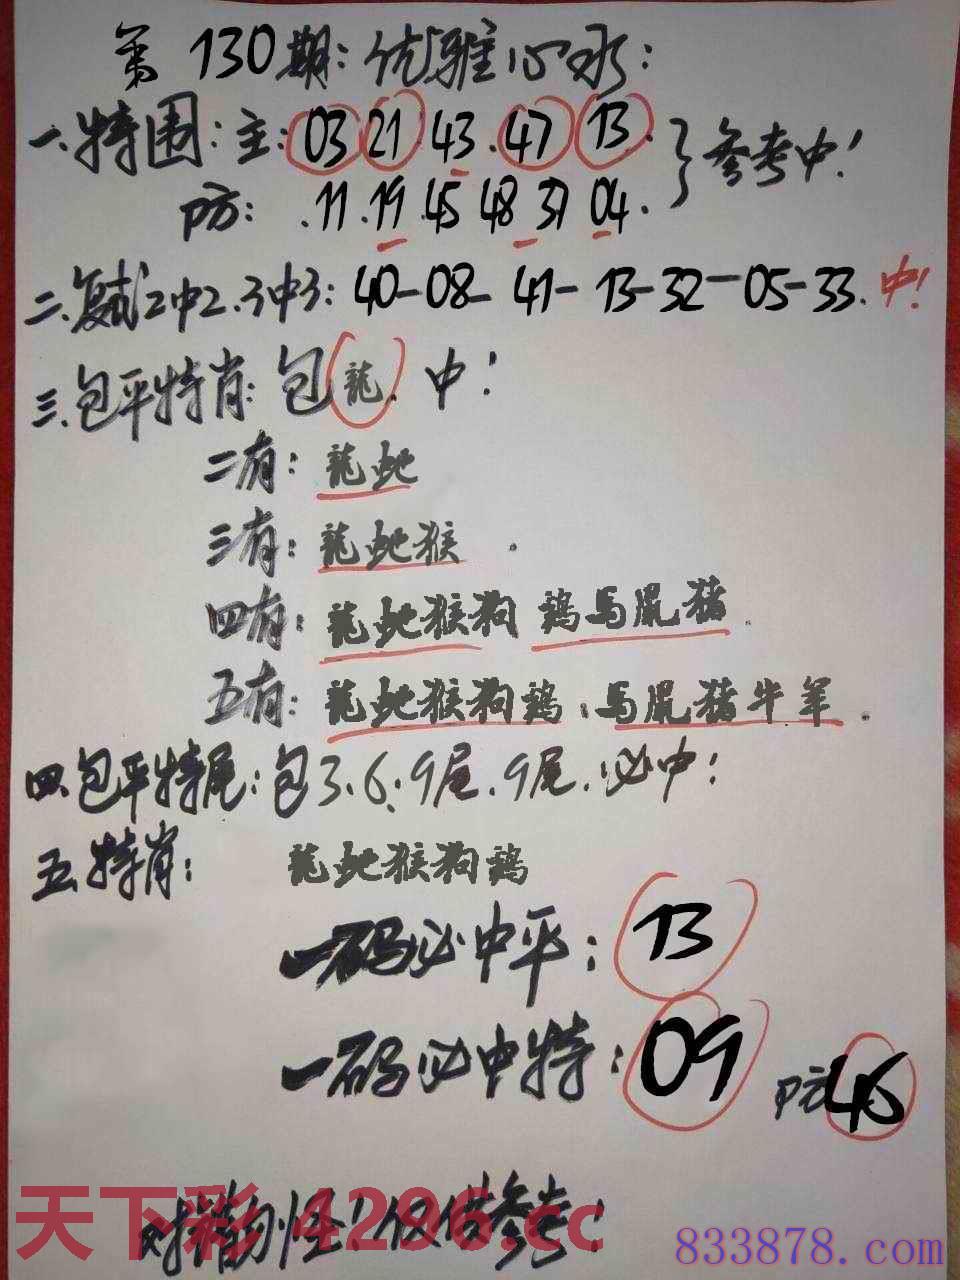 第130期：优雅心水：
一.特围：主：03 21 43.47 13.}参考中！
防：.11.19.45 48 37 04.
二.复试2中2.3中3：40-08-41-13-32-05-33.中！
三.包平特肖：包龍.中！
二有：龍蛇
三有：龍蛇猴.
四有：龍蛇猴狗 鷄馬鼠猪.
五有：龍蛇猴狗鷄.馬鼠猪牛羊.
四.包平特尾：包3.6.9尾.9尾.必中！
五.特肖：龍蛇猴狗鷄
一码必中平：13
一码必中特：09 防46
对错勿怪！仅供参考！
天下彩 4296.cc
833878.com